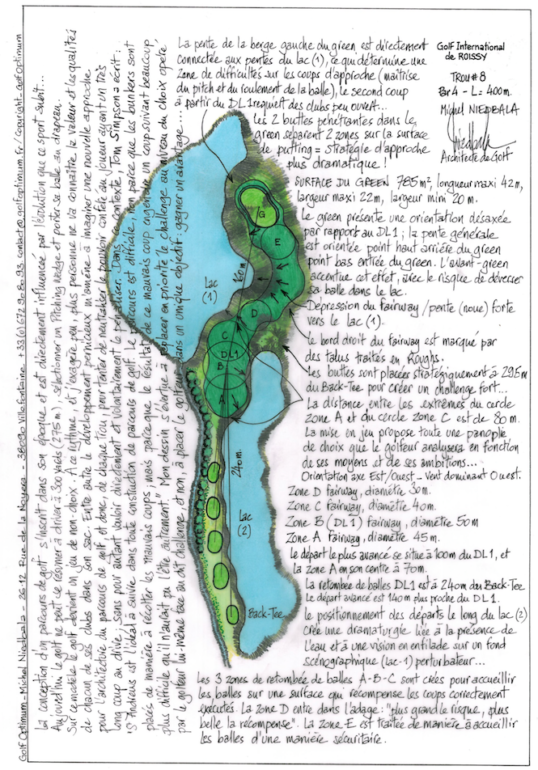 La pente de la berge gauche du green est directement
connectée aux pentes du lac (1), ce qui détermine une
zone de difficultés sur les coups d'approche (maîtrise
du pitch et du roulement de la balle), le second coup
à partir du DL1 requiert des clubs peu ouvert...
Les 2 buttes pénétrantes dans le
green séparent 2 zones sur la surface
de putting = stratégie d'approche
plus dramatique !
Golf International
de ROISSY
TROU #8
Par 4 - L = 400m.
Michel NIEDBALA
Architecte de Golf
SURFACE DU GREEN 785 m², longueur maxi 42m,
largeur maxi 22m, largeur mini 20 m.
Le green présente une orientation désaxée
par rapport au DL1 ; la pente générale
est orientée point haut arrière du green
point bas entrée du green. L'avant-green
accentue cet effet, avec le risque de déverser
sa balle dans le lac.
Dépression du fairway / pente (noue) forte
vers le lac (1).
Le bord droit du fairway est marqué par
des talus traités en Roughs.
Les buttes sont placées stratégiquement à 295m
du Back-Tee pour créer un challenge fort...
La distance entre les extrêmes du cercle
zone A et du cercle zone C est de 80 m.
La mise en jeu propose toute une panoplie
de choix que le golfeur analysera en fonction
de ses moyens et de ses ambitions...
Orientation axe Est/Ouest - Vent dominant Ouest.
Zone D fairway, diamètre 30m.
Zone C fairway, diamètre 40m.
Zone B (DL1) fairway, diamètre 50m
Zone A fairway, diamètre 45m.
Le départ le plus avancé se situe à 100m du DL1, et
la zone A en son centre à 70m.
La retombée de balles DL1 est à 240m du Back-Tee
Le départ avancé est 140m plus proche du DL1.
Le positionnement des départs le long du lac (2)
crée une dramaturgie liée à la présence de
l'eau et à une vision en enfilade sur un fond
scénographique (lac-1) perturbateur...
Les 3 zones de retombée de balles A-B-C sont créés pour accueillir
les balles sur une surface qui récompense les coups correctement
exécutés. La zone D entre dans l'adage : "plus grand le risque, plus
belle la récompense". La zone E est traitée de manière à accueillir
les balles d'une manière sécuritaire.
G
E
D
C
DL1
B
A
160m
240m.
Lac
(1)
Lac
(2)
Back-Tee
La conception d'un parcours de golf s'inscrit dans son époque et est directement influencée par l'évolution que ce sport subit...
Aujourd'hui le golf ne peut se résonner à driver à 300 Yards (275 m), sélectionner un Pitching Wedge et porter sa balle au drapeau.
Sur cet adage le golf devient un jeu de non choix. A ce rythme, et j'exagère peu, plus personne ne va connaître la valeur et les qualités
de chacun de ses clubs dans son sac. Entre autre le développement pernicieux m'amène à imaginer une nouvelle approche
pour l'architecture du parcours de golf, et donc, de chaque trou, pour tenter de neutraliser le pouvoir confié au joueur ayant un très
long coup au drive, sans pour autant vouloir directement et volontairement le pénaliser. Dans ce contexte, Tom Simpson a écrit :
"St Andrews est l'idéal à suivre dans toute construction de parcours de golf. Le parcours est difficile, non parce que les bunkers sont
placés de manière à récolter les mauvais coups, mais parce que le résultat de ce mauvais coup engendre un coup suivant beaucoup
plus difficile qu'il n'aurait pu l'être autrement". Mon dessein s'évertue à placer en priorité le challenge au niveau du choix opéré
par le golfeur lui-même face au dit challenge, et non à placer le golfeur dans un unique objectif : gagner un avantage...
Golf Optimum - Michel Niedbala - 2612 Rue de la Noyera - 38090 Villefontaine +33 (0)672 90 80 93 contact@golfoptimum.fr / copyright-golfoptimum